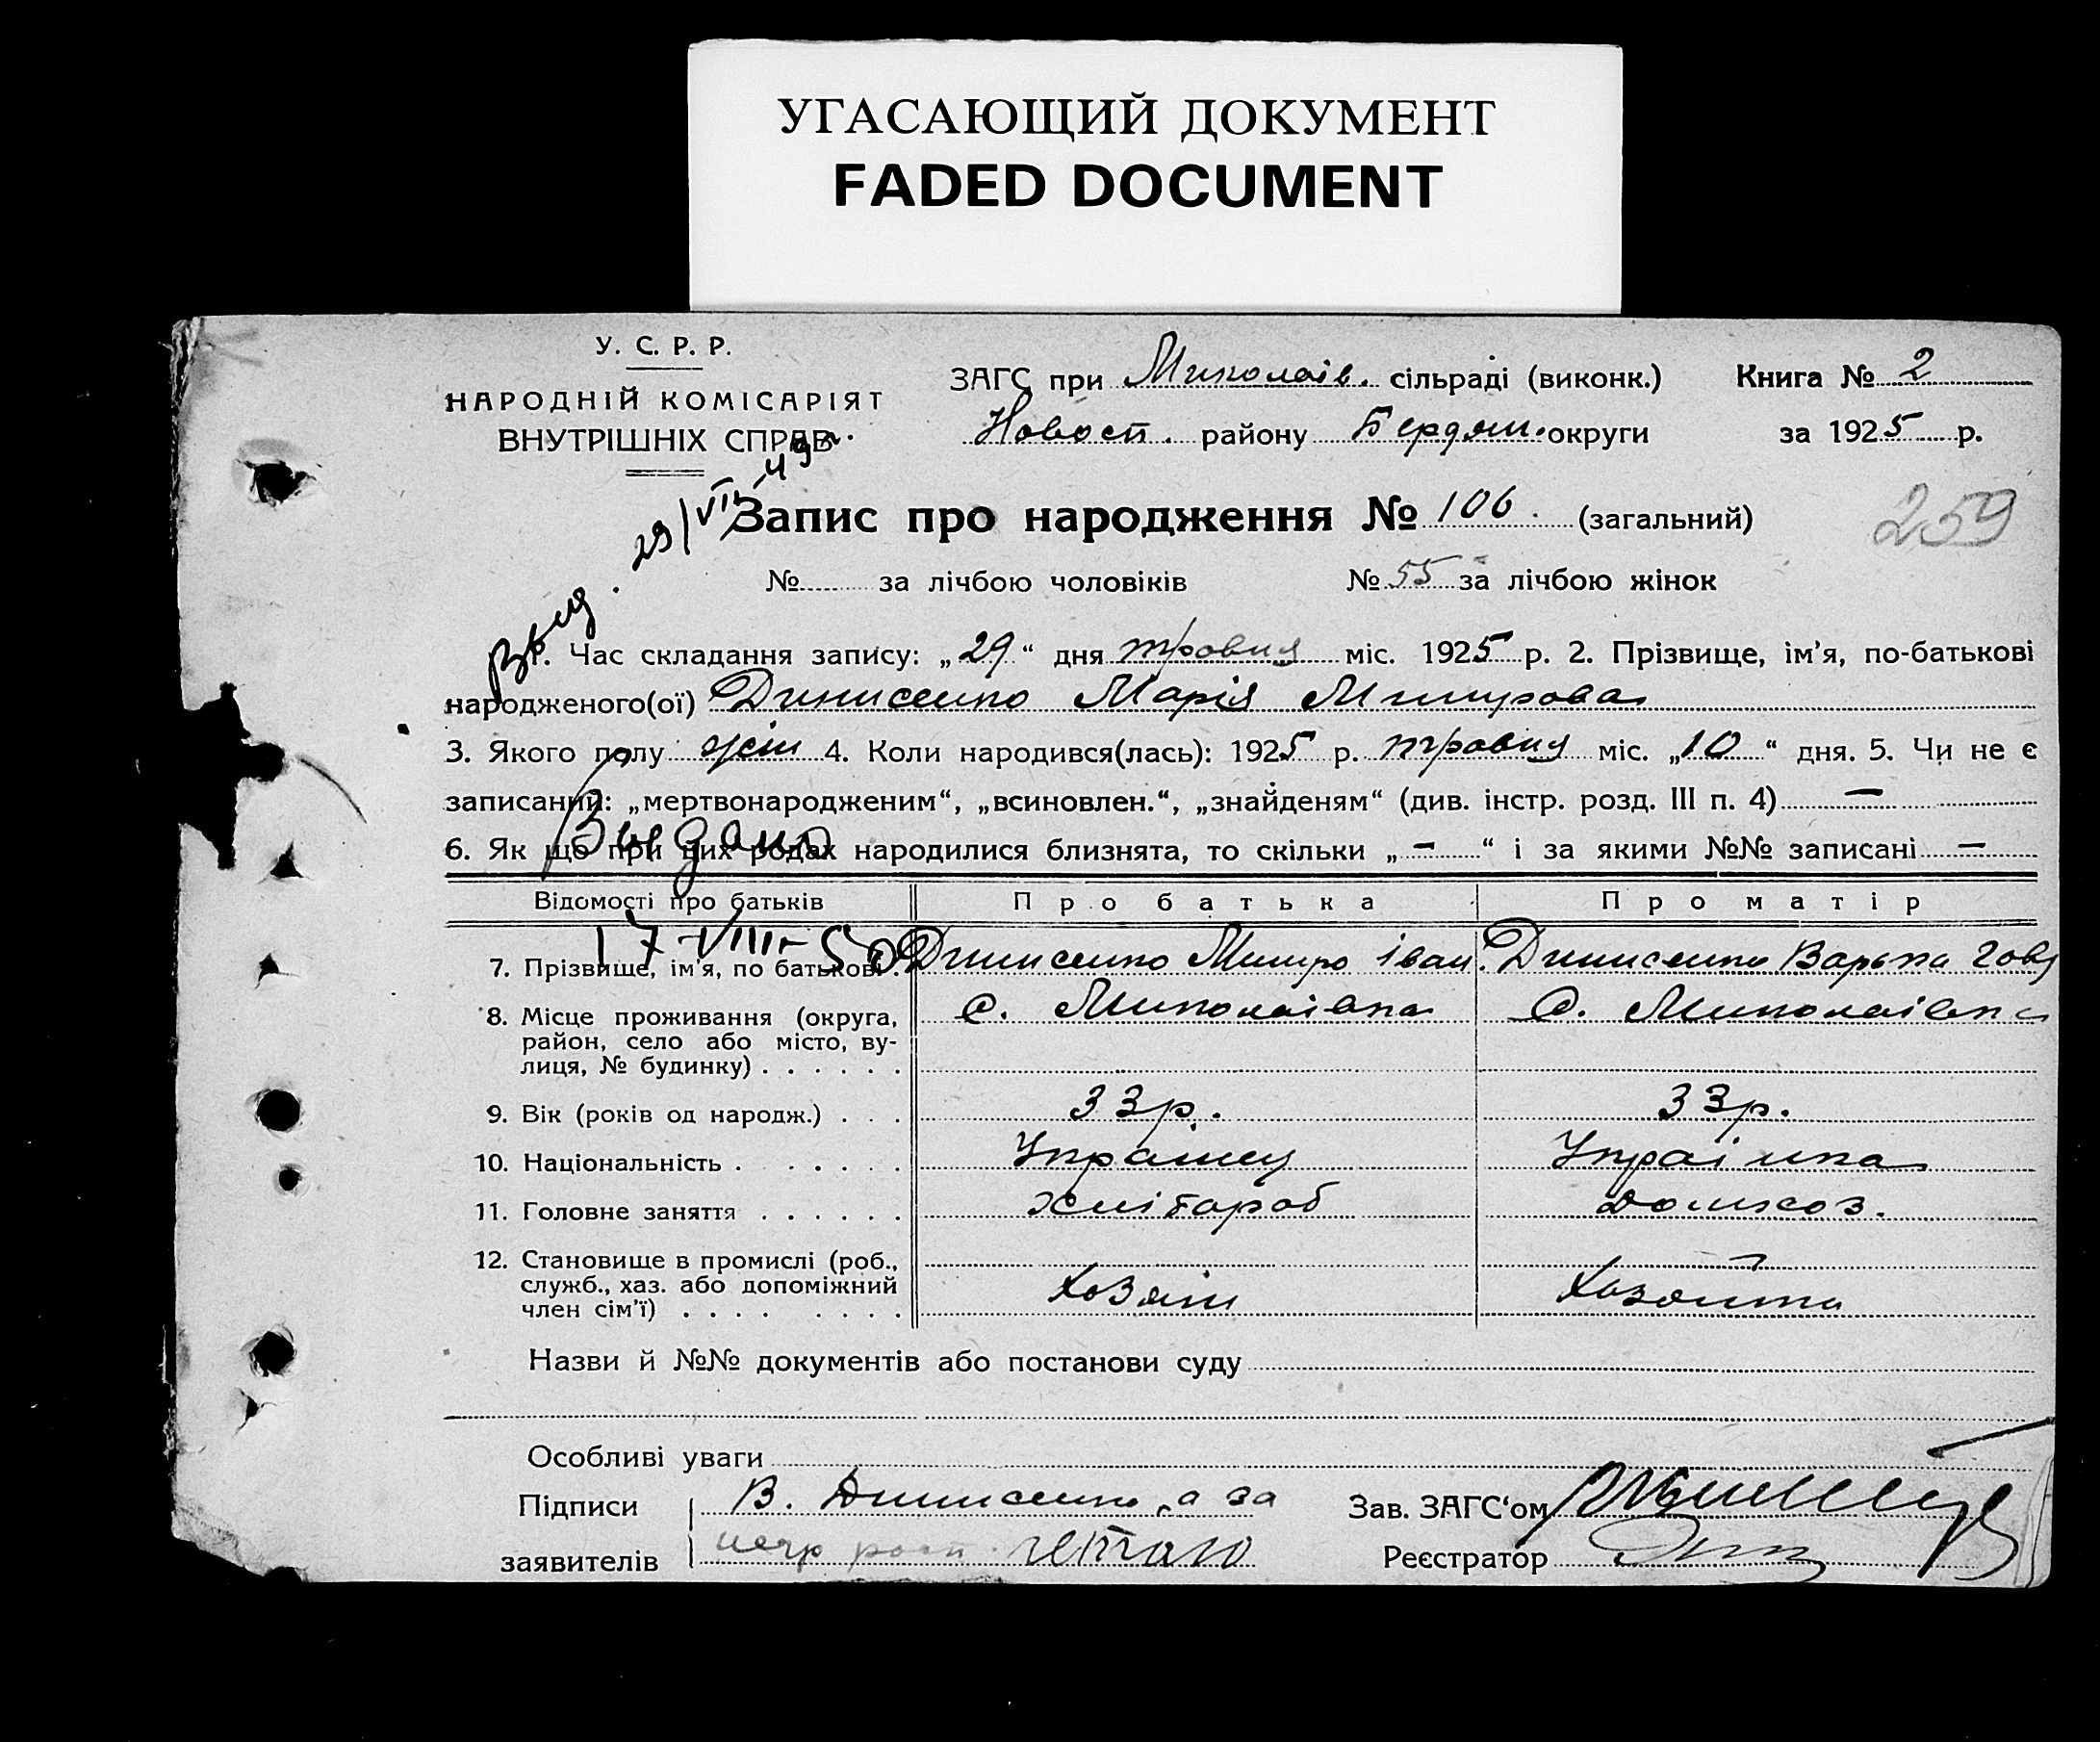 УГАСАЮЩИЙ ДОКУМЕНТ
FADED DOCUMENT
У. С. Р. Р.
НАРОДНІЙ КОМІСАРІЯТ
ВНУТРІШНІХ СПРАВ
ЗАГС при Миколаїв. сільраді (виконк.) Книга № 2
Новосп. району Бердян. округи за 1925 р.
29/VII-49 г.
Запис про народження № 106. (загальний)
259
№ за лічбою чоловіків № 55 за лічбою жінок
Выд.
1. Час складання запису: „29“ дня травня міс. 1925 р. 2. Прізвище, ім’я, по-батькові
народженого(ої) Динисенко Марія Митрова
3. Якого полу жін 4. Коли народився(лась): 1925 р. травня міс. „10“ дня. 5. Чи не є
записаний: „мертвонародженим“, „всиновлен.“, „знайденям“ (див. інстр. розд. III п. 4) —
6. Як що при цих родах народилися близнята, то скільки „—“ і за якими №№ записані —
Выдано
17-VIII-50
Відомості про батьків Про батька Про матір
7. Прізвище, ім’я, по батькові Динисенко Митро Іван. Динисенко Варька
8. Місце проживання (округа, с. Миколаївка с. Миколаївка
район, село або місто, ву-
лиця, № будинку) . . . . . .
9. Вік (років од народж.) . . . 33р. 33р.
10. Національність . . . . . . Українец Українка
11. Головне заняття . . . . . . Хлібороб домхоз.
12. Становище в промислі (роб.,
служб., хаз. або допоміжний
член сім’ї) . . . . . . . . Хозяін Хозяйка
Назви й №№ документів або постанови суду
Особливі уваги
Підписи В. Динисенко, а за
заявителів
Зав. ЗАГС‘ом
Реєстратор